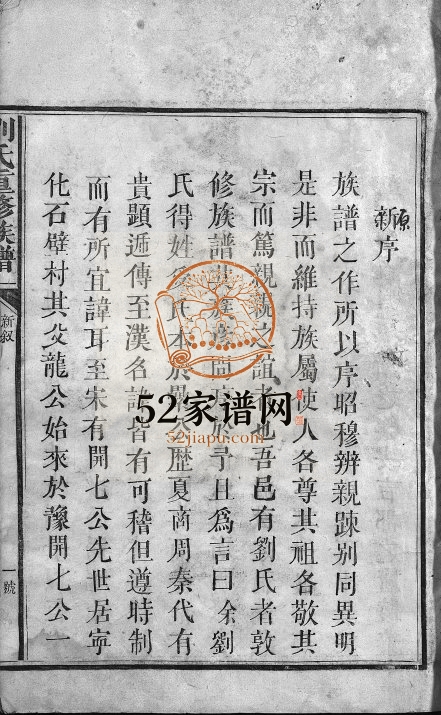 原
新序
族譜之作所以序昭穆辨親踈别同異明
是非而維持族屬使人各尊其祖各敬其
宗而篤親親之誼者也吾邑有劉氏者敦
修族譜 於予且爲言曰余劉
氏得姓 氏本於 歴夏商周秦代有
貴顕遞傳至漢名 皆有可稽但遵時制
而有所宜諱耳至宋有開七公先世居寜
化石壁村其父龍公始來於豫開七公一
劉氏重修族譜
新叙
一號
52家谱网
52jiapu.com